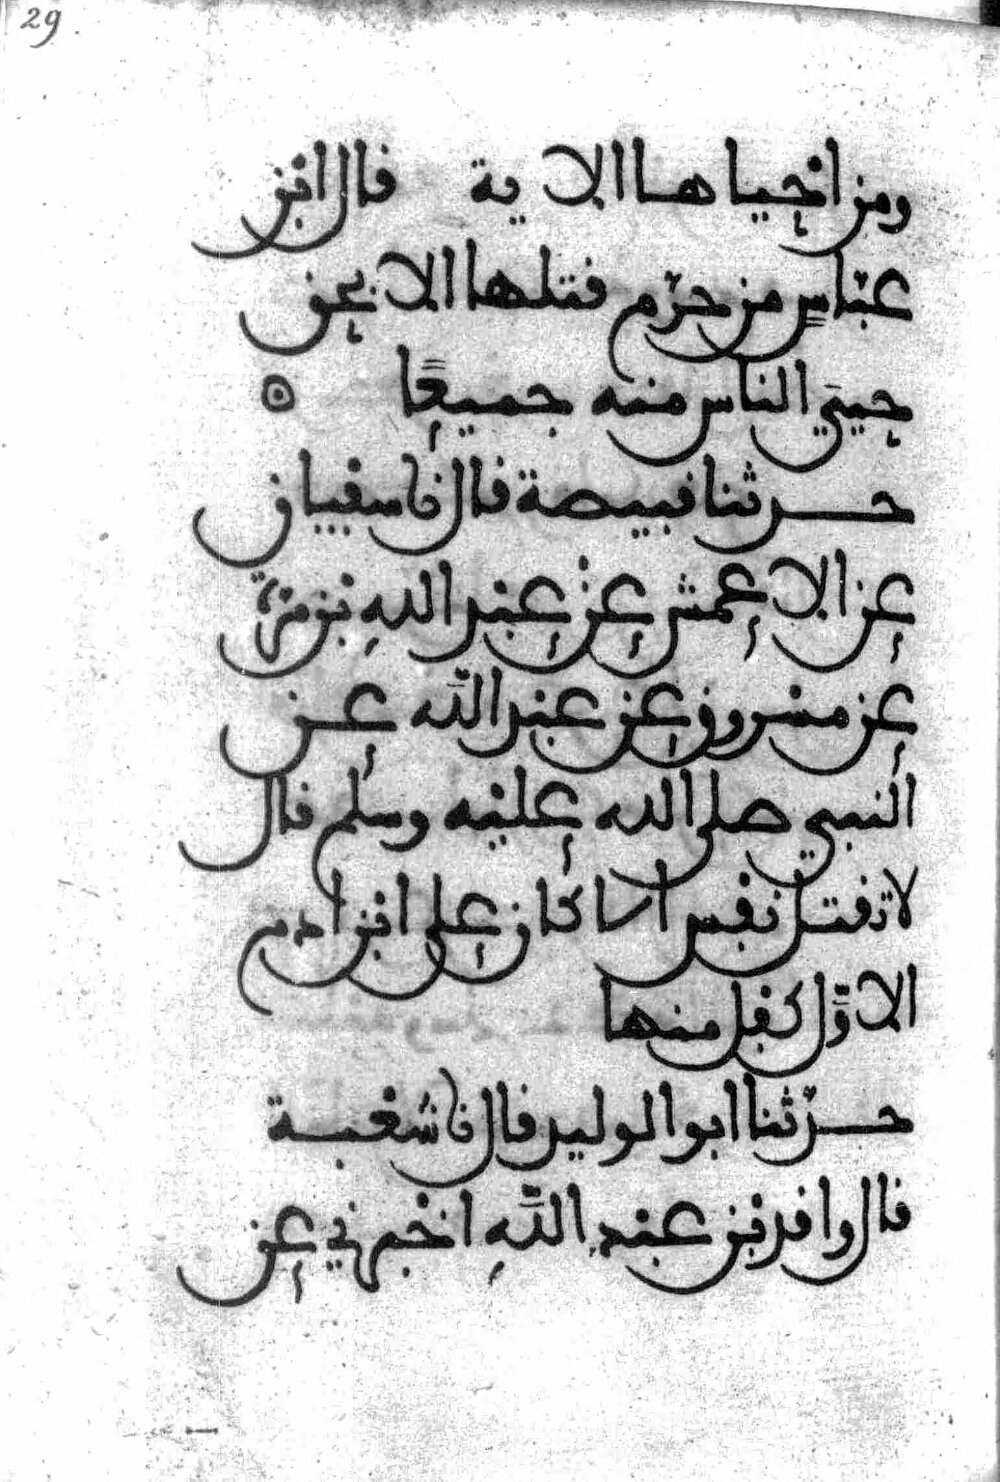 29
ومن احياها الاية قال ابن
عباس من حرم قتلها الا بحق
حيي الناس منه جميعا ه
حدثنا قبيصة قال نا سفيان
عن الاعمش عن عبد الله بن مرة
عن مسروق عن عبد الله عن
النبي صلى الله عليه وسلم قال
لا تقتل نفس الا كان على ابن ادم
الاول كفل منها
حدثنا ابو الوليد قال نا شعبة
قال واقد بن عبد الله اخبرني عن